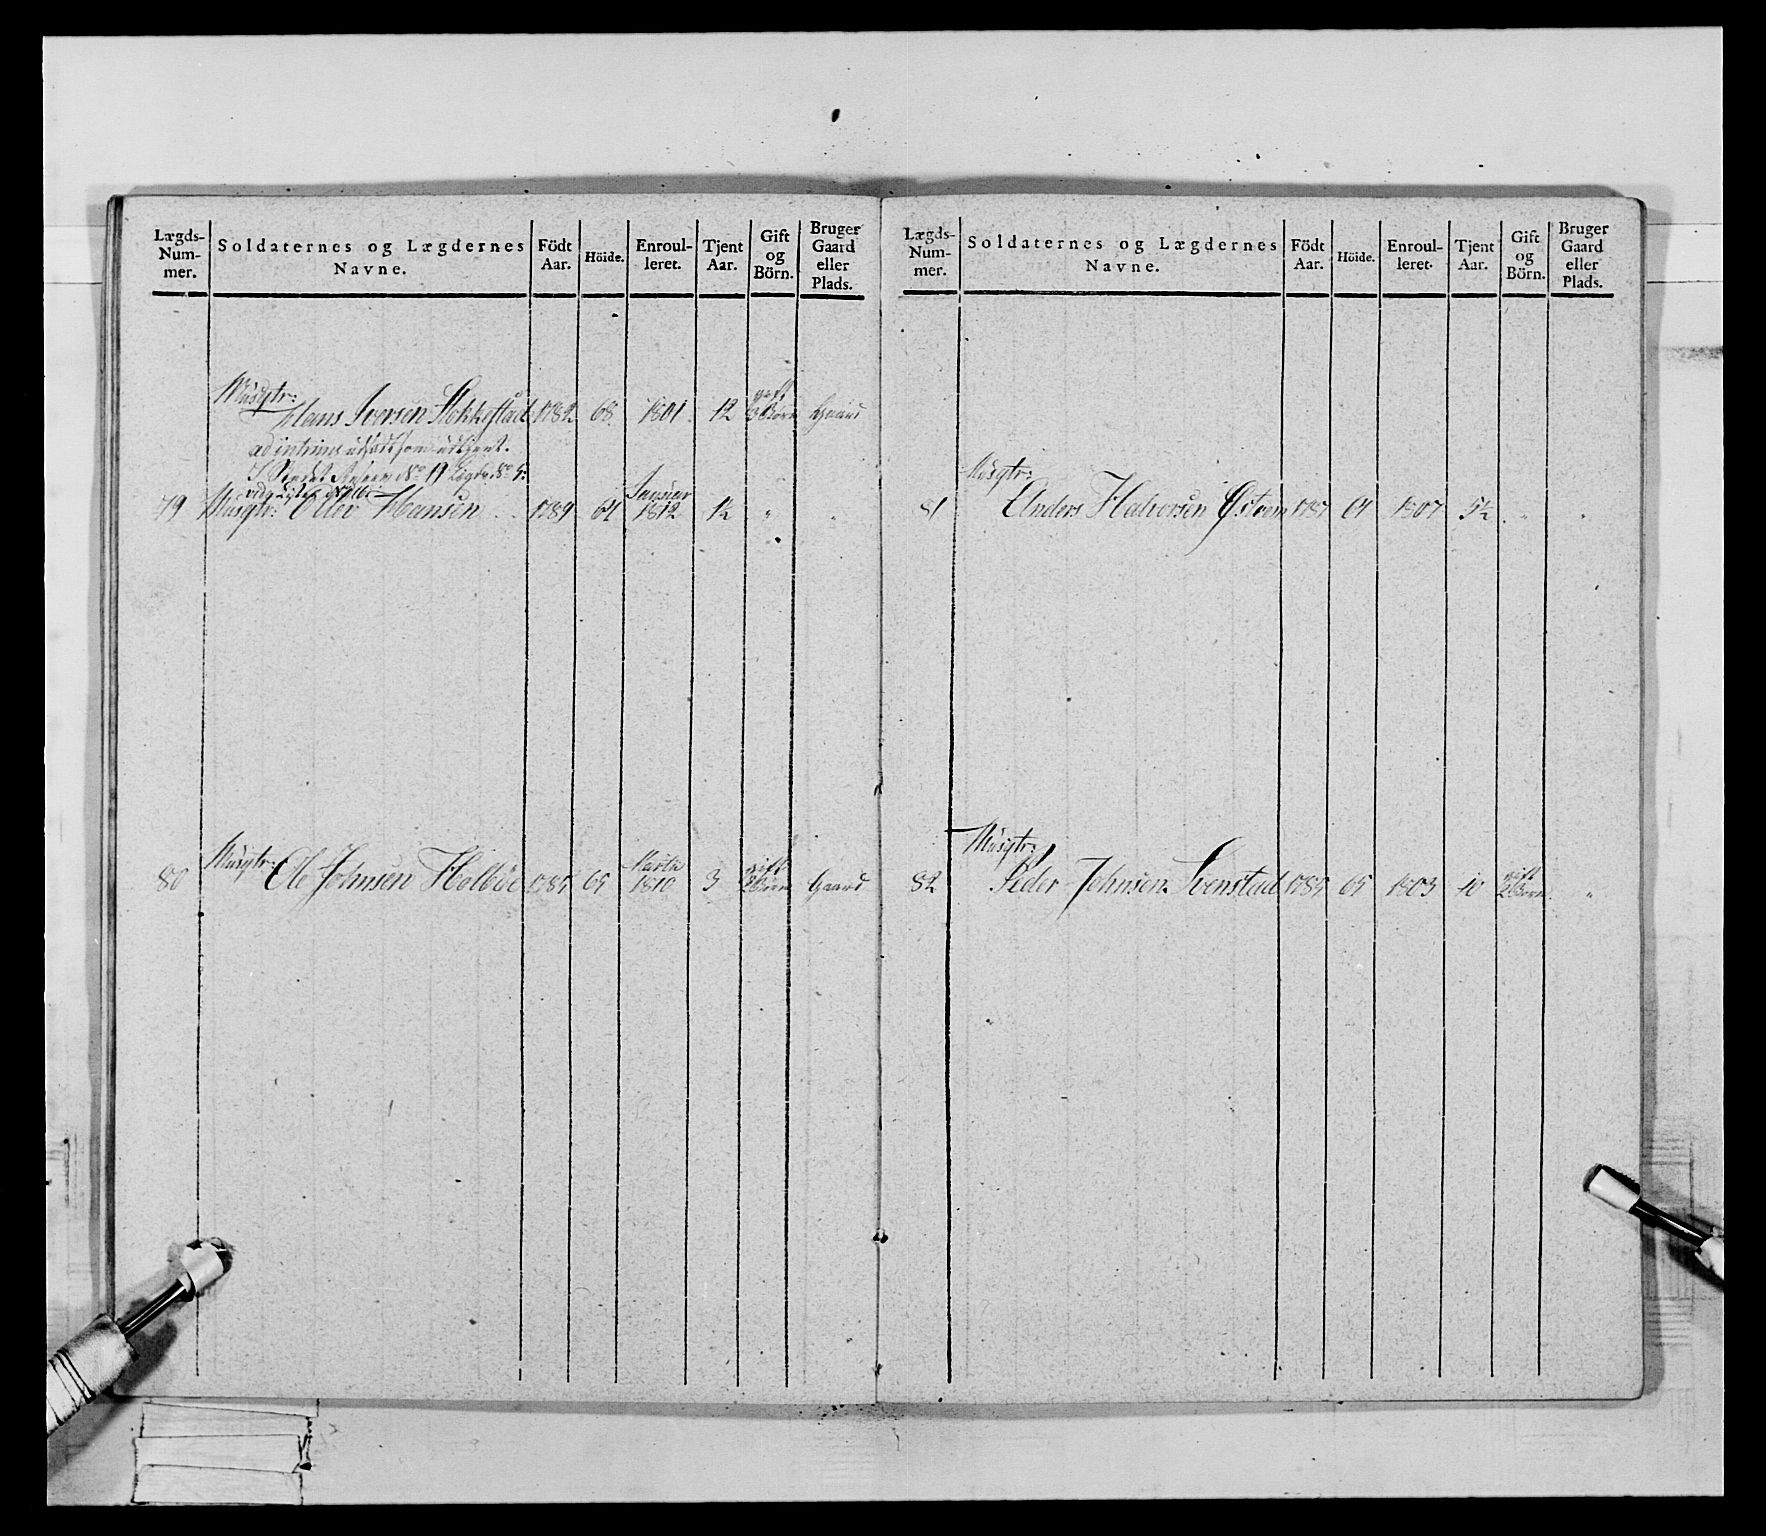 Lægds-
Num-
mer.
Soldaternes og Lægdernes
Navne.
Födt
Aar.
Höide.
Enroul-
leret.
Tjent
Aar.
Gift
og
Börn.
Bruger
Gaard
eller
Plads.
Musqtr:
Hans Iversen Stokkestad 1782 68. 1801 12 gift 3 Börn Gaard
ad intrims udsadt som udtjent.
79 Musqtr: Ellev Hansen 1789 64 Januar 1812 1½ " "
80 Musqtr: Ole Johnsen Holböe 1785 65 Martz 1810 3 gift 2 Börn Gaard
Lægds-
Num-
mer.
Soldaternes og Lægdernes
Navne.
Födt
Aar.
Höide.
Enroul-
leret.
Tjent
Aar.
Gift
og
Börn.
Bruger
Gaard
eller
Plads.
Musqtr:
81 Anders Halvorsen 1787 64 1807 5½ " "
Musqtr:
82 Peder Johnsen Svenstad 1785 65 1803 10 gift 2 Börn "